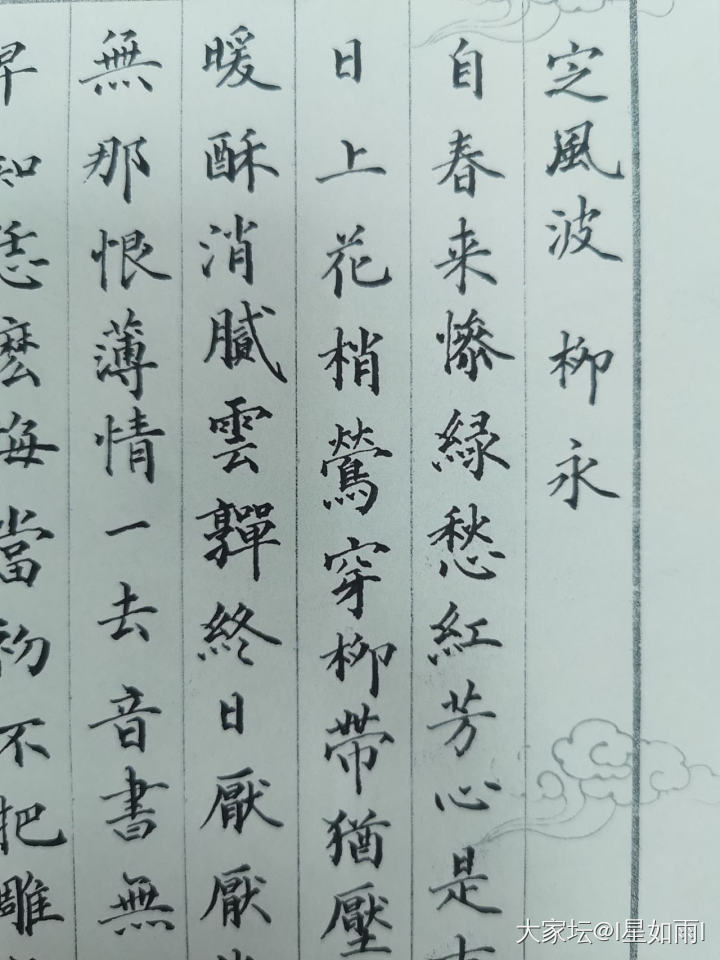 定風波 柳永
自春来慘緑愁紅芳心是
日上花梢鶯穿柳帶猶壓
暖酥消膩雲嚲終日厭厭
無那恨薄情一去音書無
早知恁麽悔當初不把雕
大家坛@l星如雨l